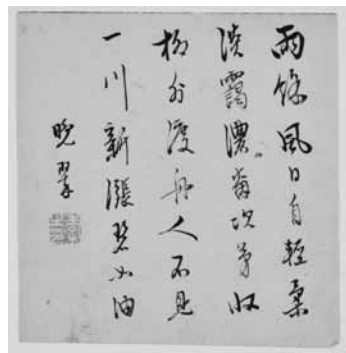 雨餘風日自輕柔
淡靄濃嵐次第收
柳外渡舟人不見
一川新漲碧如油
晚翠